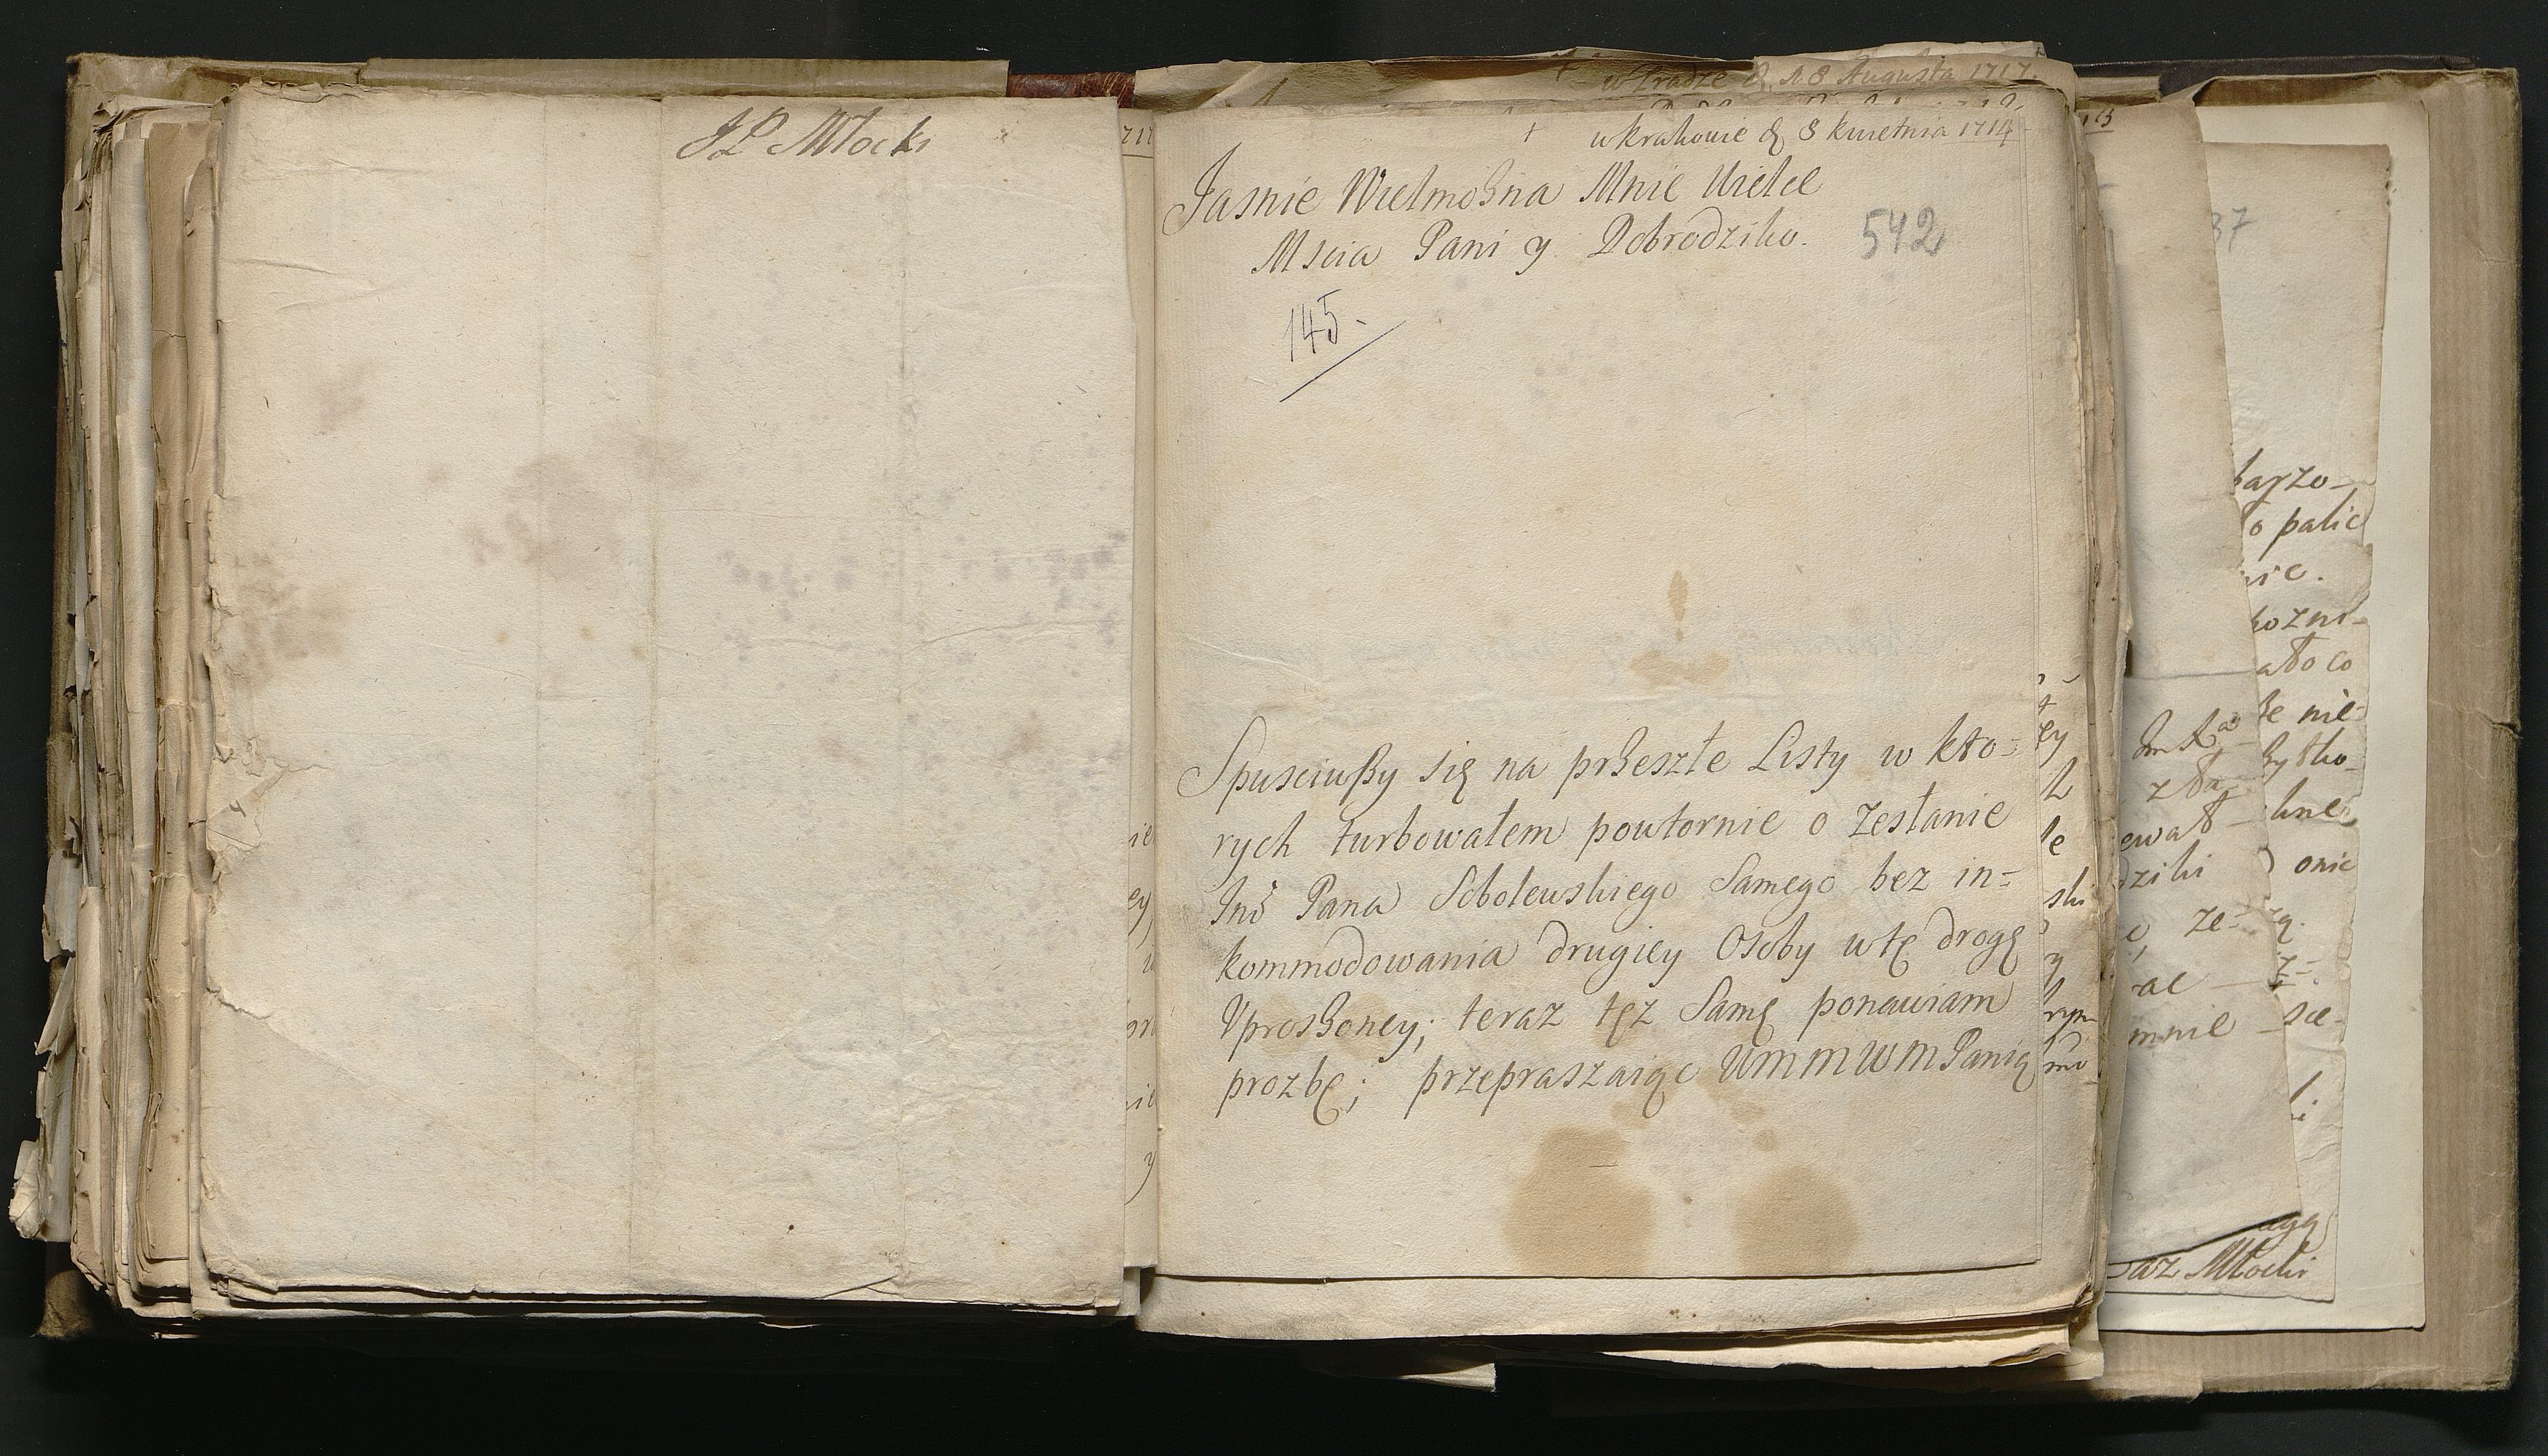 JP Młocki
w Pradze d. 18 Augusta 1717.
+ w krakowie d 8 kwietnia 1714
Jasnie Wielmożna Mnie Wielce
Mscia Pani y Dobrodziko.
542
145.
Spusciwszy się na przeszłe Listy w kto=
rych turbowałem powtornie o zesłanie
Jmć Pana Sobolewskiego Samego bez in=
kommodowania drugiey Osoby w tę drogę
Uproszoney; teraz tęż Samę ponawiam
prozbę; przepraszaiąc UMMWMPanią
37
barzo-
o palic
nic.
kozni-
ało co
że nie-
onic
dziki
ze=
mnie
Młocki